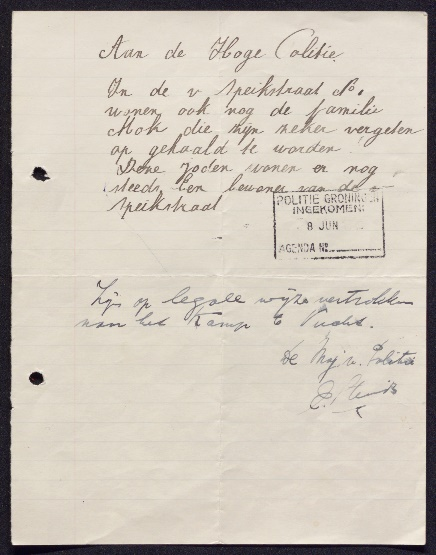 Aan de Hoge Politie
In de v Speikstraat No.
wonen ook nog de familie
Mok die mijn zeker vergeten
op gehaald te worden.
Deze Joden wonen er nog
steeds. Een bewoner van de
Speikstraat
POLITIE GRONINGEN
INGEKOMEN
8 JUN
AGENDA No.
Zijn op legale wijze vertrokken
naar het Kamp te Vucht.
De Maj. v. Politie